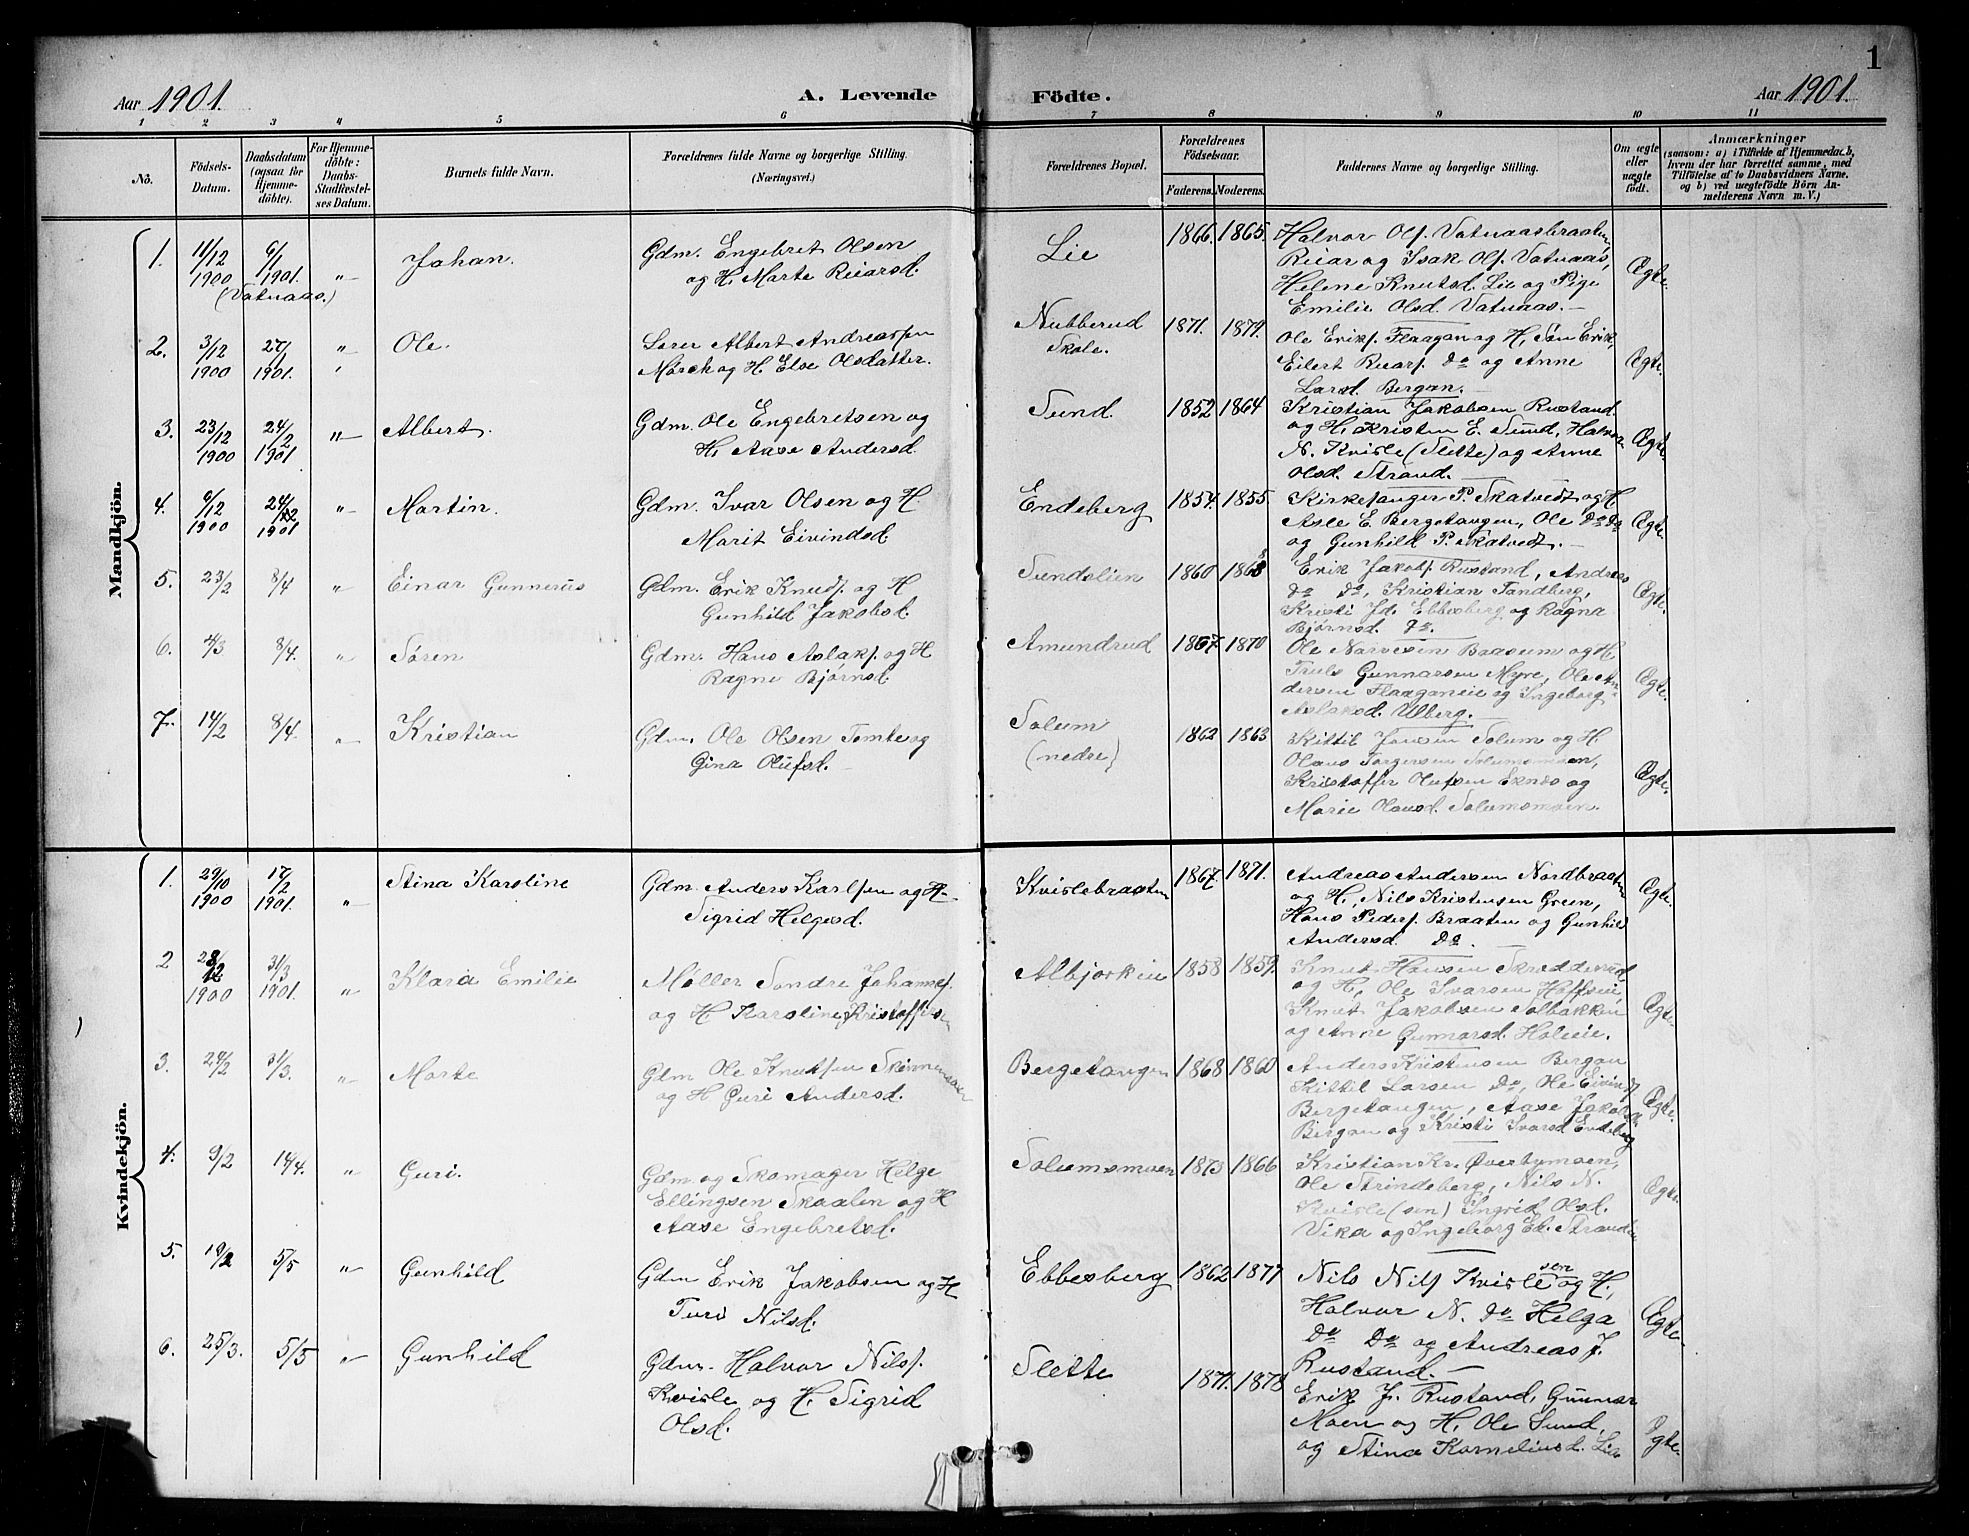 1
Aar 1901. A. Levende Födte. Aar 1901.
1 2 3 4 5 6 7 8 9 10 11
No.
Födsels-Datum.
Daabsdatum (ogsaa for Hjemme-döbte).
For Hjemme-döbte: Daabs-Stadfæstel-ses Datum.
Barnets fulde Navn.
Forældrenes fulde Navne og borgerlige Stilling. (Næringsvei.)
Forældrenes Bopæl.
Forældrenes Födselsaar.
Faderens. Moderens.
Faddernes Navne og borgerlige Stilling.
Om ægte eller uægte födt.
Anmærkninger
(saasom: a) i Tilfælde af Hjemmedaab,
hvem der har forrettet samme, med
Tilföielse af to Daabsvidners Navne.
og b) ved uægtefödte Börn An-
melderens Navn m. V.)
Mandkjön.
1. 11/12 1900 6/1 1901. „ Johan.
(Vatnaas.)
Gdm. Engebret Olsen
og H. Marte Reiarsd.
Lie
1866. 1865.
Halvor Ols. Vatnaasbraaten,
Reiar og Isak Ols. Vatnaas,
Helene Knutsd. Lie og Pige
Emilie Olsd. Vatnaas.
Ægte.
2. 3/12 1900 27/1 1901. „ Ole.
Lærer Albert Andreassen
Mörch og H. Else Olsdatter.
Nubberud
Skole.
1871. 1879.
Ole Eriks. Flaagan og H, Søn Erik,
Eilert Reiars. Do og Anne
Larsd. Bergan.
Ægte.
3. 23/12 1900 24/2 1901 „ Albert.
Gdm. Ole Engebretsen og
H. Aase Andersd.
Sund.
1852 1864
Kristian Jakobsen Rustand
og H, Kristen E. Sund, Halvor
N. Kvisle (Slette) og Anne
Olsd. Strand.
Ægte.
4. 9/12 1900 24/2 1901 „ Martin.
Gdm. Ivar Olsen og H
Marit Eivindsd.
Endeberg
1854. 1855.
Kirkesanger P. Skatvedt og H
Asle E. Bergetangen, Ole Do Do
og Gunhild P. Skatvedt.
Ægte.
5. 23/2 8/4 „ Einar Gunnerus
Gdm. Erik Knuds. og H
Gunhild Jakobsd.
Sundslien
1860 1868
Erik Jakobs. Rustand, Andreas
Do Do, Kristian Tandberg,
Kristi Jd. Ebbesberg og Ragna
Bjørnsd. Do.
Ægte.
6. 4/3 8/4. „ Sören
Gdm. Hans Aslaks. og H
Ragne Bjørnsd.
Amundrud
1867. 1870
Ole Narvesen Baasum og H,
Truls Gunnarsen Myre, Ole An-
dersen Flaaganeie og Ingeborg
Aslaksd. Ulberg.
Ægte.
7. 14/2 8/4. „ Kristian
Gdm. Ole Olsen Tomte og
Gina Olufsd.
Solum
(nedre)
1862 1863
Kittil Jansen Solum og H.
Olaus Torgersen Solumsmoen,
Kristoffer Olufsen Eknes og
Marie Olausd. Solumsmoen.
Ægte.
Kvindekjön.
1. 29/10 1900 17/2 1901. „ Stina Karoline
Gdm. Anders Karlsen og H
Sigrid Helgesd.
Kvislebraaten
1867. 1871.
Andreas Andersen Nordbraaten
og H, Nils Kristensen Green,
Hans Peders. Braaten og Gunhild
Andersd. Do.
Ægte.
2 28/12 1900 31/3 1901. „ Klara Emilie
Møller Sondre Johannes.
og H Karoline Kristoffersen
Albjørkeie
1858 1859.
Knut Hansen Skredderud
og H, Ole Ivarsen Hoffseie,
Knut Jakobsen Solbakken
og Anne Gunnarsd. Haleie.
Ægte.
3. 24/2 31/3. „ Marte
Gdm Ole Knutsen
og H Guri Andersd.
Bergetangen
1868 1860
Anders Kristensen Bergan
Kittil Larsen Do, Ole Eivind
Bergetangen, Aase Jakobsd.
Bergan og Kristi Ivarsd Endeberg
Ægte.
4. 9/2 14/4. „ Guri.
Gdm. og Skomager Helge
Ellingsen Skaalen og H
Aase Engebretsd.
Solumsmoen
1873 1866
Kristian Kr. Øverbymoen,
Ole Strindeberg, Nils N.
Kvisle (søn) Ingrid Olsd.
Vika og Ingeborg Eb. Stranden
Ægte.
5. 19/2 5/5 „ Gunhild
Gdm Erik Jakobsen og H
Turi Nilsd.
Ebbesberg
1862 1877
Nils Nils Kvisle søn og H,
Halvor N. Do Helga
Do Do og Andreas J.
Rustand.
Ægte.
6. 25/3. 5/5 „ Gunhild
Gdm. Halvor Nils.
Kvisle og H. Sigrid
Olsd.
Slette
1871. 1878
Erik J. Rustand, Gunnar
Moen og H, Ole Sund,
og Stina Korneliusd. Lie
Ægte.